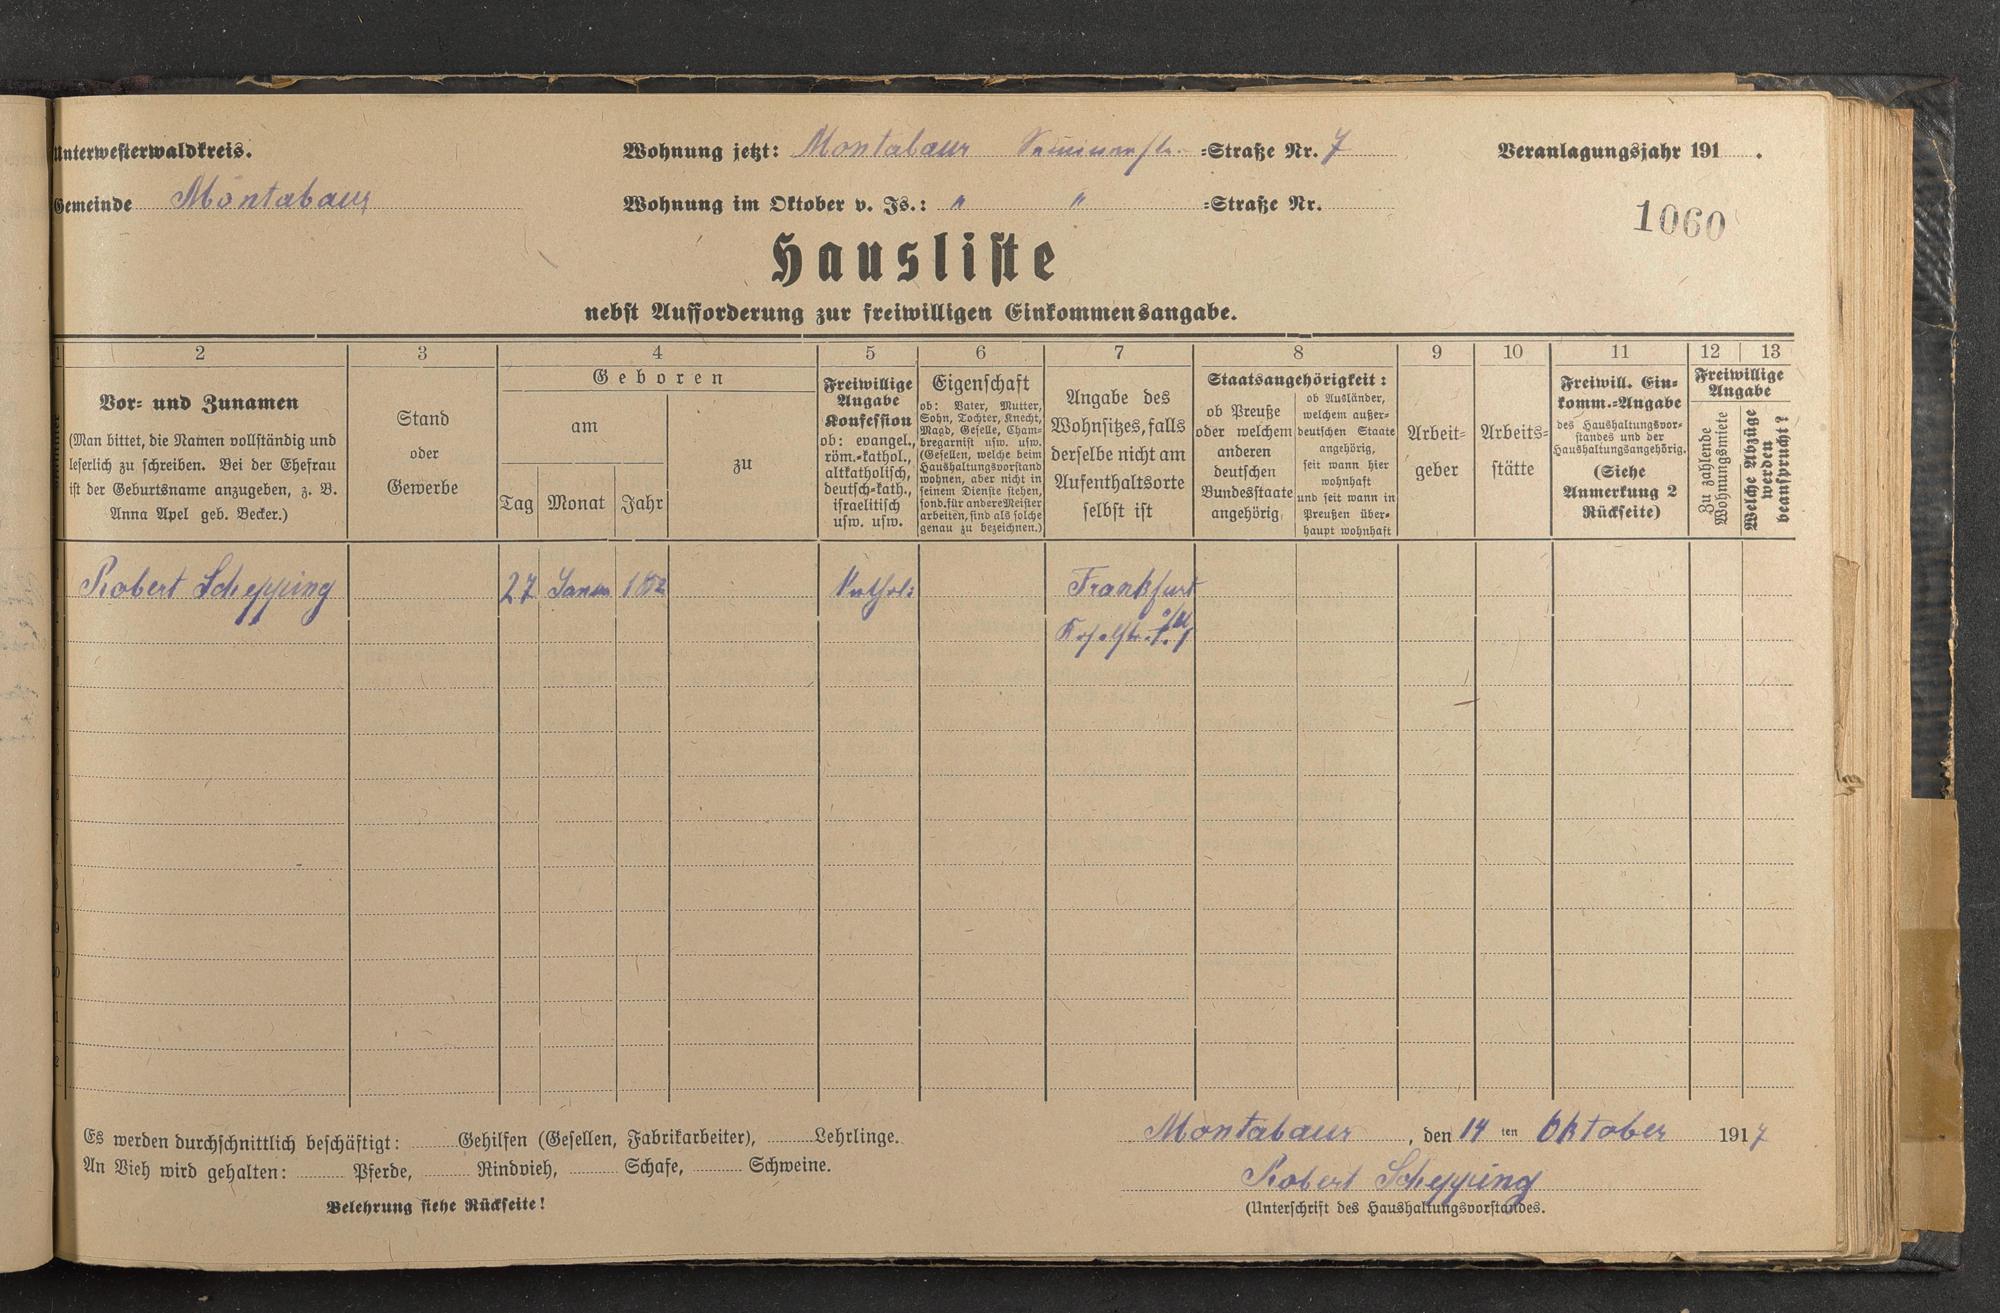 Unterwesterwaldkreis.
Gemeinde Montabaur
Wohnung jetzt: Montabaur =Straße Nr. 7
Wohnung im Oktober v. Js.: " " =Straße Nr.
Veranlagungsjahr 191 .
1060
Hausliste
nebst Aufforderung zur freiwilligen Einkommensangabe.
1 2 3 4 5 6 7 8 9 10 11 12 13
Vor- und Zunamen
(Man bittet, die Namen vollständig und
leserlich zu schreiben. Bei der Ehefrau
ist der Geburtsname anzugeben, z. B.
Anna Apel geb. Becker.)
Stand
oder
Gewerbe
Geboren
am
Tag Monat Jahr
zu
Freiwillige
Angabe
Konfession
ob: evangel.,
röm.-kathol.,
altkatholisch,
deutsch-kath.,
israelitisch
usw. usw.
Eigenschaft
ob: Vater, Mutter,
Sohn, Tochter, Knecht,
Magd, Geselle, Cham-
bregarnist usw. usw.
(Gesellen, welche beim
Haushaltungsvorstand
wohnen, aber nicht in
seinem Dienste stehen,
sond. für andere Meister
arbeiten, sind als solche
genau zu bezeichnen.)
Angabe des
Wohnsitzes, falls
derselbe nicht am
Aufenthaltsorte
selbst ist
Staatsangehörigkeit:
ob Preuße
oder welchem
anderen
deutschen
Bundesstaate
angehörig
ob Ausländer,
welchem außer-
deutschen Staate
angehörig,
seit wann hier
wohnhaft
und seit wann in
Preußen über-
haupt wohnhaft
Arbeit-
geber
Arbeits-
stätte
Freiwill. Ein-
komm.-Angabe
des Haushaltungsvor-
standes und der
Haushaltungsangehörig.
(Siehe
Anmerkung 2
Rückseite)
Freiwillige
Angabe
Zu zahlende
Wohnungsmiete
Welche Abzüge
werden
beansprucht?
Robert Schepping 27 Kathol: Frankfurt
Es werden durchschnittlich beschäftigt: Gehilfen (Gesellen, Fabrikarbeiter), Lehrlinge.
An Vieh wird gehalten: Pferde, Rindvieh, Schafe, Schweine.
Belehrung siehe Rückseite!
Montabaur, den 14 ten Oktober 1917
Robert Schepping
(Unterschrift des Haushaltungsvorstandes.